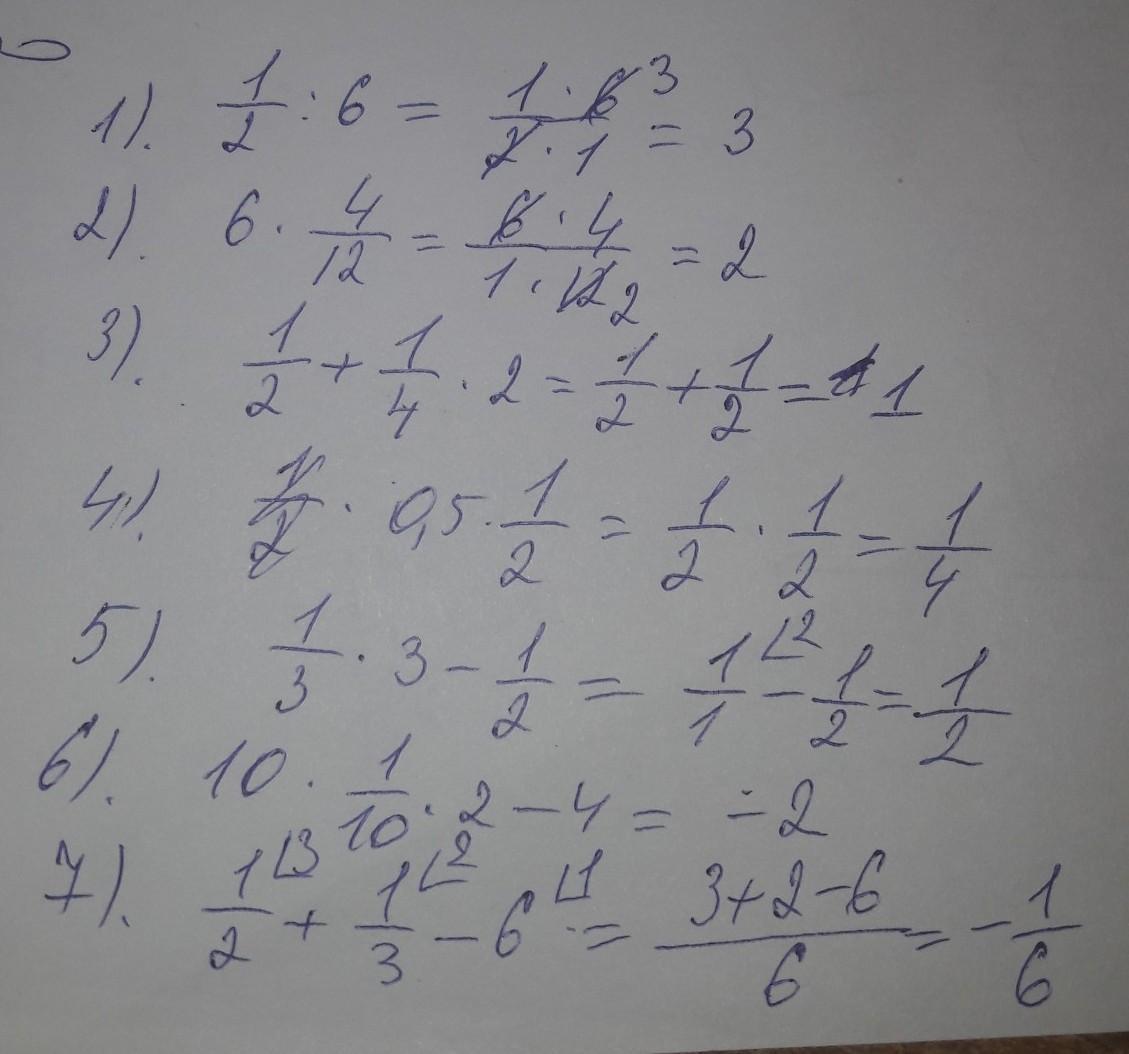 1). 1/2 : 6 = 1·6 3/2·1 = 3
2). 6 · 4/12 = 6·4/1·12 2 = 2
3). 1/2 + 1/4 · 2 = 1/2 + 1/2 = 1
4). 1/2 · 0,5 · 1/2 = 1/2 · 1/2 = 1/4
5). 1/3 · 3 - 1/2 = 1/1 ∟2 - 1/2 = 1/2
6). 10 · 1/10 · 2 - 4 = -2
7). 1/2 ∟3 + 1/3 ∟2 - 6 ∟1 = 3+2-6/6 = -1/6